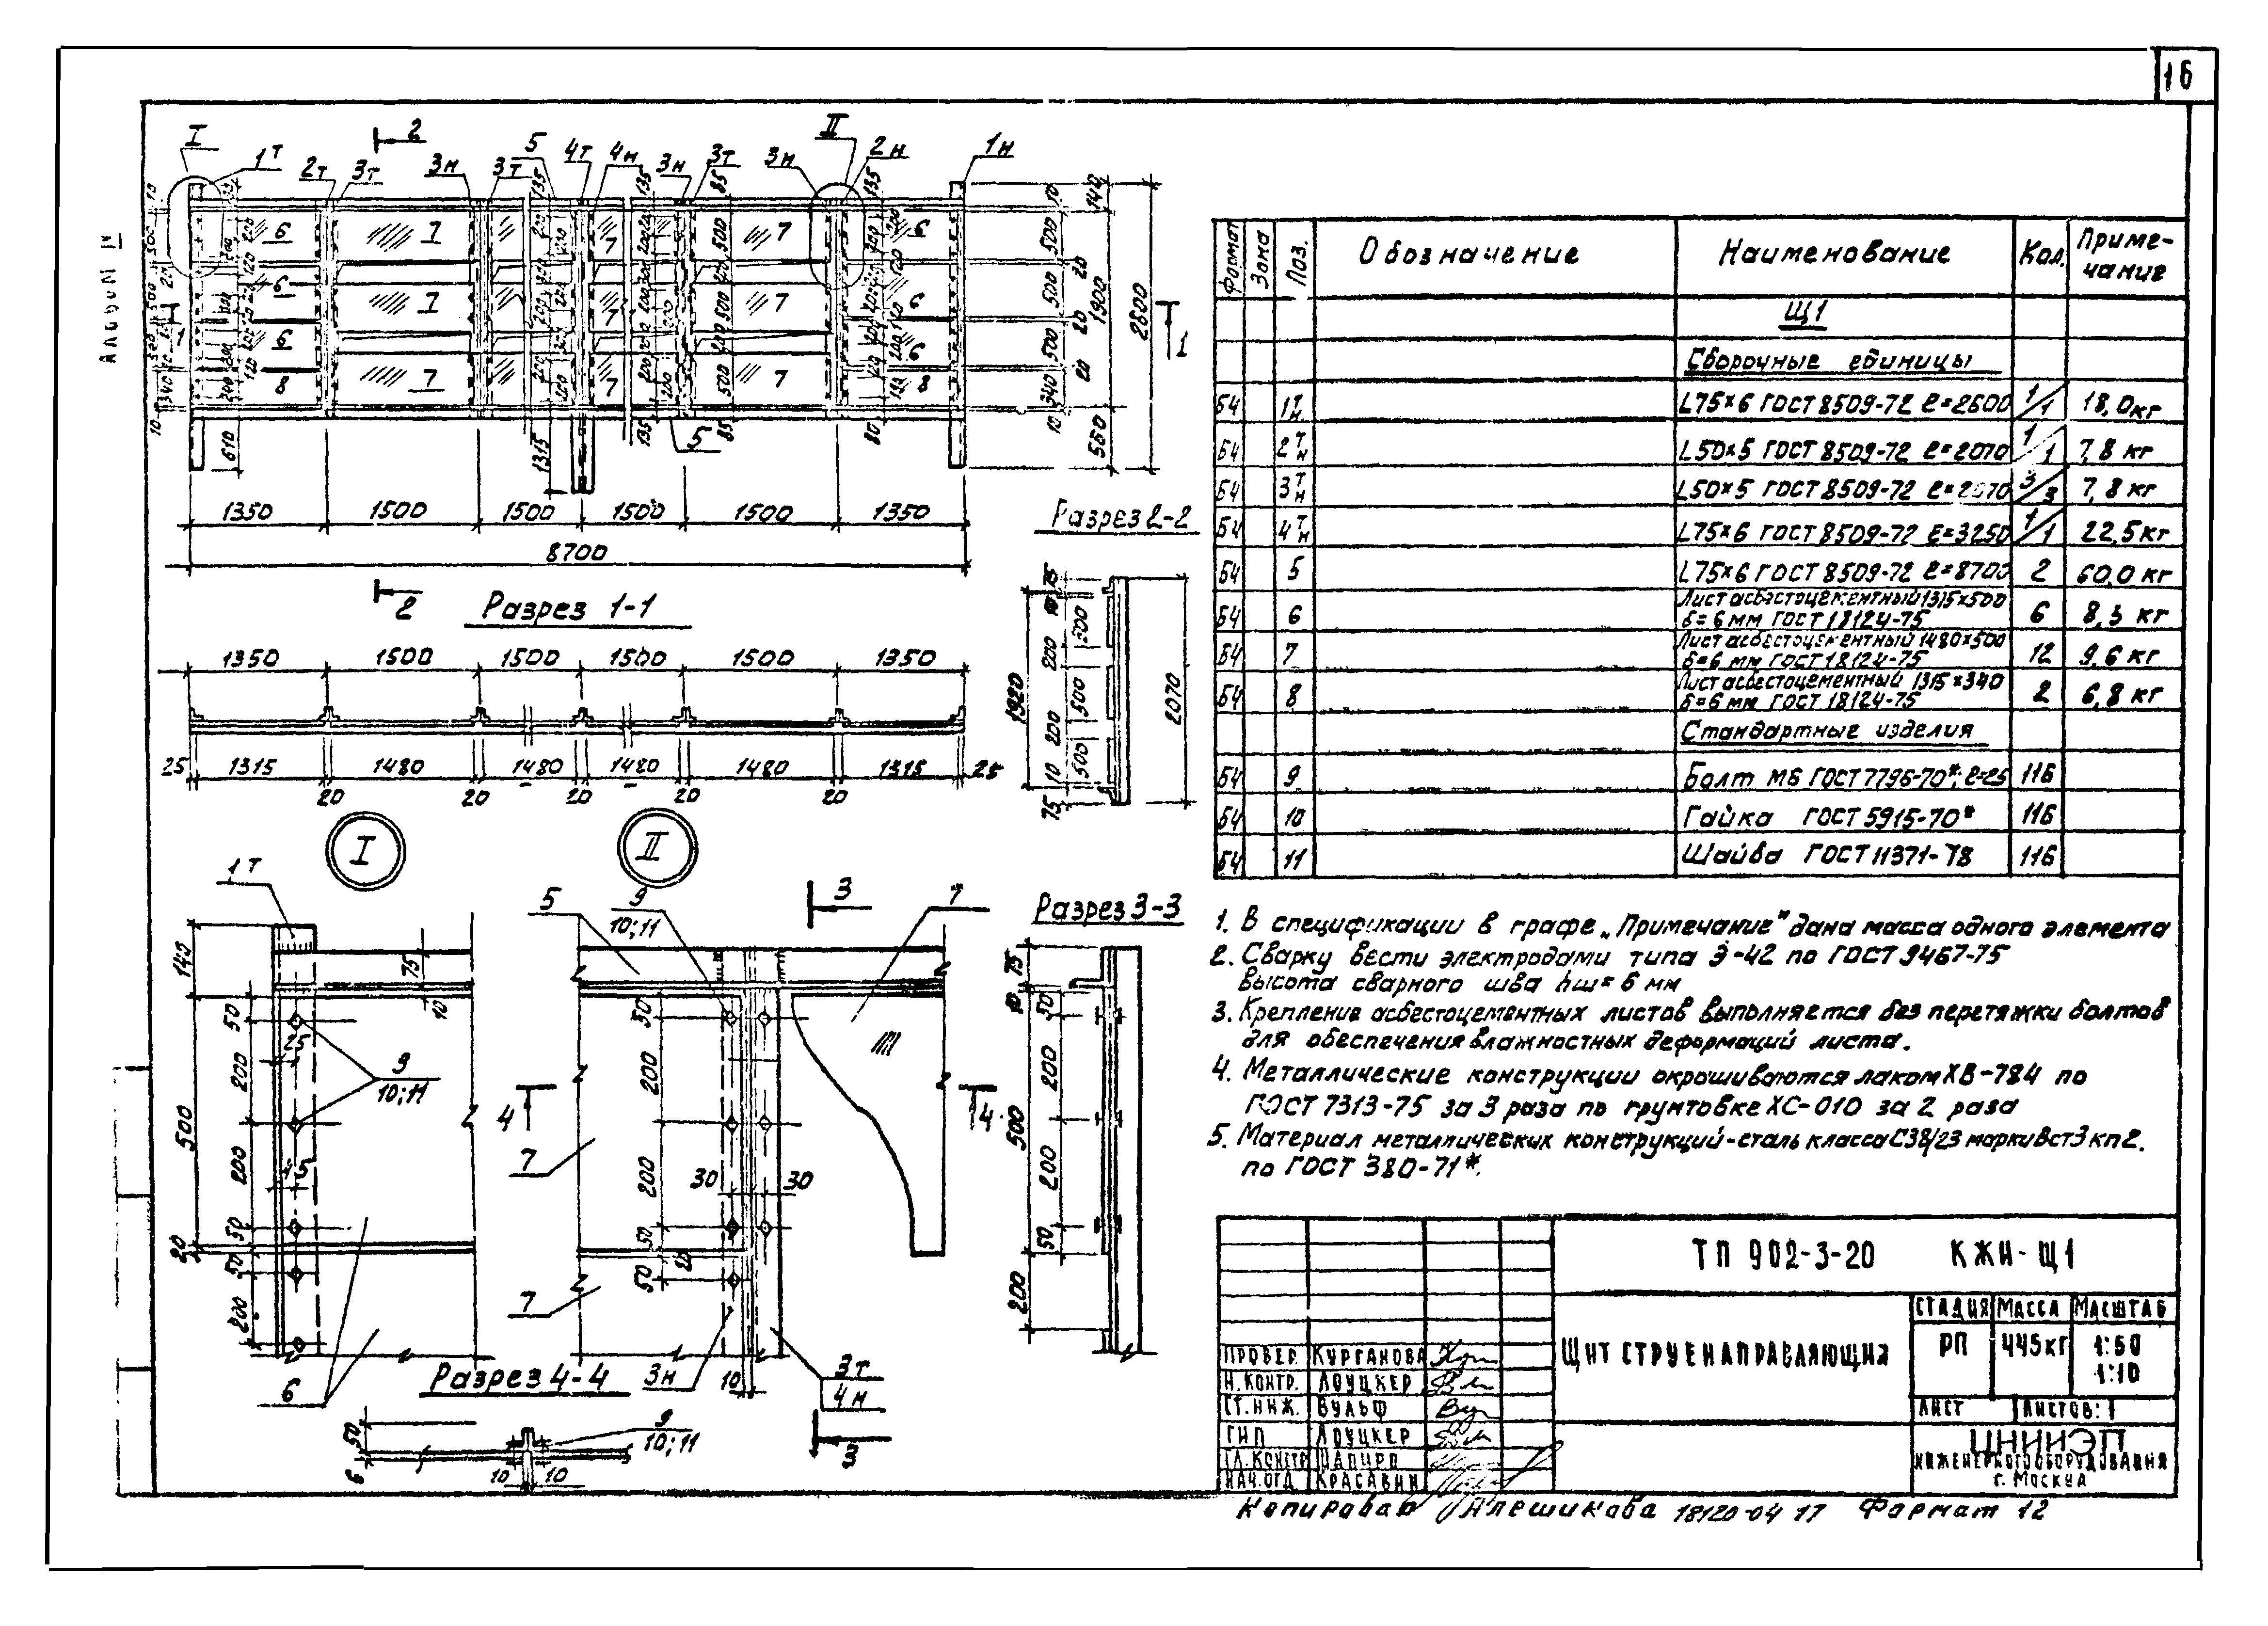 16
Альбом IV
I
1т
2
2т
3т
3н
3т
5
4т
4н
3н
3т
3н
II
2н
1н
6 7 7 7 7 6
6 7 7 7 7 6
6 6
8 7 7 7 8
5
140
1900
2600
560
500
20
500
20
500
20
340
10
610
1315
1
1350 1500 1500 1500 1500 1350
8700
2
Разрез 1-1
1350 1500 1500 1500 1500 1350
25 1315 1480 1480 1480 1480 1315 25
20 20 20 20 20
Разрез 2-2
75
1920
200
500
200
500
10
75
2070
I
1т
140
75
10
50
25
200
500
9
10;11
200
45
50
20
50
200
6
II
5
9
10;11
3
7
50
200
4
4
7
200
30
30
50
20
50
7
3н
10
3т
4н
3
Разрез 3-3
75
10
50
200
500
200
50
200
Разрез 4-4
50
6
9
10;11
10
10
Формат Зона Поз. Обозначение Наименование Кол. Приме-
чание
Щ1
Сборочные единицы
Б4 1 т н L75×6 ГОСТ 8509-72 ℓ=2600 1/1 18,0кг
Б4 2 т н L50×5 ГОСТ 8509-72 ℓ=2070 1/1 7,8 кг
Б4 3 т н L50×5 ГОСТ 8509-72 ℓ=2070 3/3 7,8 кг
Б4 4 т н L75×6 ГОСТ 8509-72 ℓ=3250 1/1 22,5кг
Б4 5 L75×6 ГОСТ 8509-72 ℓ=8700 2 60,0 кг
Б4 6 Лист асбестоцементный 1315×500
б=6 мм ГОСТ 18124-75 6 8,3 кг
Б4 7 Лист асбестоцементный 1480×500
б=6 мм ГОСТ 18124-75 12 9,6 кг
Б4 8 Лист асбестоцементный 1315×340
б=6 мм ГОСТ 18124-75 2 6,8 кг
Стандартные изделия
Б4 9 Болт М6 ГОСТ 7796-70*; ℓ=25 116
Б4 10 Гайка ГОСТ 5915-70* 116
Б4 11 Шайба ГОСТ 11371-78 116
1. В спецификации в графе „Примечание" дана масса одного элемента
2. Сварку вести электродами типа Э-42 по ГОСТ 9467-75
высота сварного шва hш= 6 мм
3. Крепление асбестоцементных листов выполняется без перетяжки болтов
для обеспечения влажностных деформаций листа.
4. Металлические конструкции окрашиваются лаком ХВ-784 по
ГОСТ 7313-75 за 3 раза по грунтовке ХС-010 за 2 раза
5. Материал металлических конструкций-сталь класса С38/23 марки ВСт3 кп2.
по ГОСТ 380-71*.
ТП 902-3-20 КЖИ-Щ1
Щит струенаправляющий
Стадия Масса Масштаб
РП 445кг 1:50
1:10
Лист Листов: 1
ЦНИИЭП
инженерного оборудования
г. Москва
Провер. Курганова
Н. контр. Лоуцкер
Ст. инж. Вульф
ГИП Лоуцкер
Гл. констр Шапиро
Нач. отд Красавин
Копировал Алешикова 18120-04 17 Формат 12